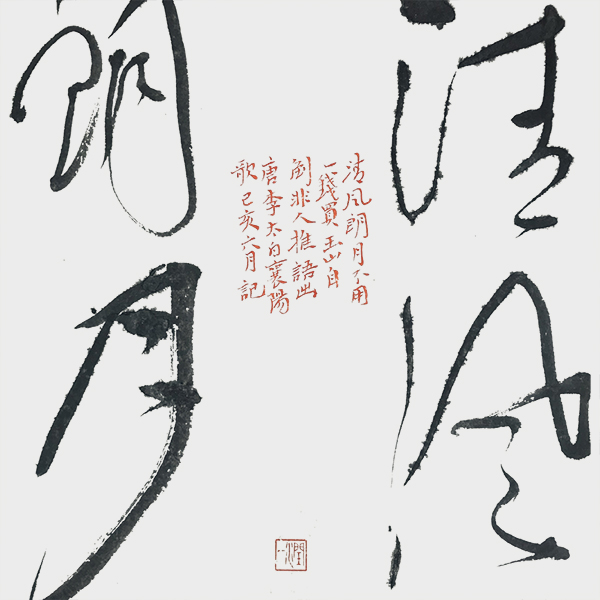 清风
朗月
清风朗月不用
一錢買玉山自
倒非人推語出
唐李太白襄陽
歌己亥六月記